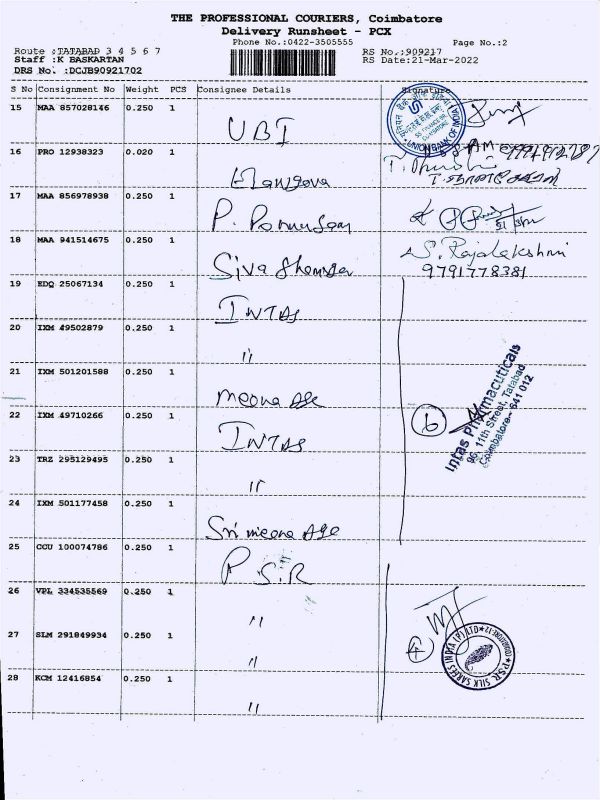 THE PROFESSIONAL COURIERS, Coimbatore
Delivery Runsheet - PCX
Phone No.:0422-3505555
Page No.:2
Route :TATABAD 3 4 5 6 7
RS No.:909217
Staff :K BASKARTAN
RS Date:21-Mar-2022
DRS No. :DCJB90921702
S No Consignment No Weight PCS Consignee Details Signature
15 MAA 857028146 0.250 1
UBI
UNION BANK OF INDIA
16 PRO 12938323 0.020 1
17 MAA 856978938 0.250 1
P.
18 MAA 941514675 0.250 1
Siva
S. Rajalakshmi
9791778381
19 EDQ 25067134 0.250 1
INTAS
20 IXM 49502879 0.250 1
"
21 IXM 501201588 0.250 1
meena Age
Intas Pharmacuticals
96, 11th Street, Tatabad
Coimbatore - 641 012
6
22 IXM 49710266 0.250 1
INTAS
23 TRZ 295129495 0.250 1
"
24 IXM 501177458 0.250 1
Sri meena Age
25 CCU 100074786 0.250 1
P.S.R
26 VPL 334535569 0.250 1
"
27 SLM 291849934 0.250 1
"
4
P.S.R. SILK SAREES INDIA (P) LTD
28 KCM 12416854 0.250 1
"